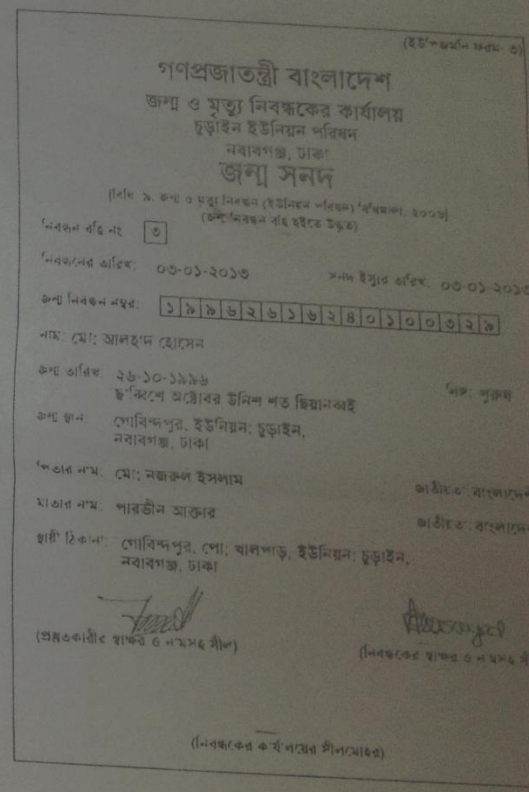 (ইউপিজনি ফরম- ৩)
গণপ্রজাতন্ত্রী বাংলাদেশ
জন্ম ও মৃত্যু নিবন্ধকের কার্যালয়
চুড়াইন ইউনিয়ন পরিষদ
নবাবগঞ্জ, ঢাকা
জন্ম সনদ
(বিধি ৯, জন্ম ও মৃত্যু নিবন্ধন (ইউনিয়ন পরিষদ) বিধিমালা, ২০০৬)
(জন্ম নিবন্ধন বহি হইতে উদ্ধৃত)
নিবন্ধন বহি নং ৩
নিবন্ধনের তারিখ: ০৩-০১-২০১৩ সনদ ইস্যুর তারিখ: ০৩-০১-২০১৩
জন্ম নিবন্ধন নম্বর: ১৯৯৬২৬১৬২৪০১০০৩২৯
নাম: মো: হোসেন
জন্ম তারিখ ২৬-১০-১৯৯৬ লিঙ্গ: পুরুষ
ছাব্বিশে অক্টোবর উনিশ শত ছিয়ানব্বই
জন্ম স্থান: গোবিন্দপুর, ইউনিয়ন: চুড়াইন,
নবাবগঞ্জ, ঢাকা
পিতার নাম: মো: নজরুল ইসলাম জাতীয়তা: বাংলাদে
মাতার নাম: পারভীন আক্তার জাতীয়তা: বাংলাদে
স্থায়ী ঠিকানা: গোবিন্দপুর, পো: খালপাড়, ইউনিয়ন: চুড়াইন,
নবাবগঞ্জ, ঢাকা
(প্রস্তুতকারীর স্বাক্ষর ও নামসহ সীল) (নিবন্ধকের স্বাক্ষর ও নামসহ সী
(নিবন্ধকের কার্যালয়ের সীলমোহর)